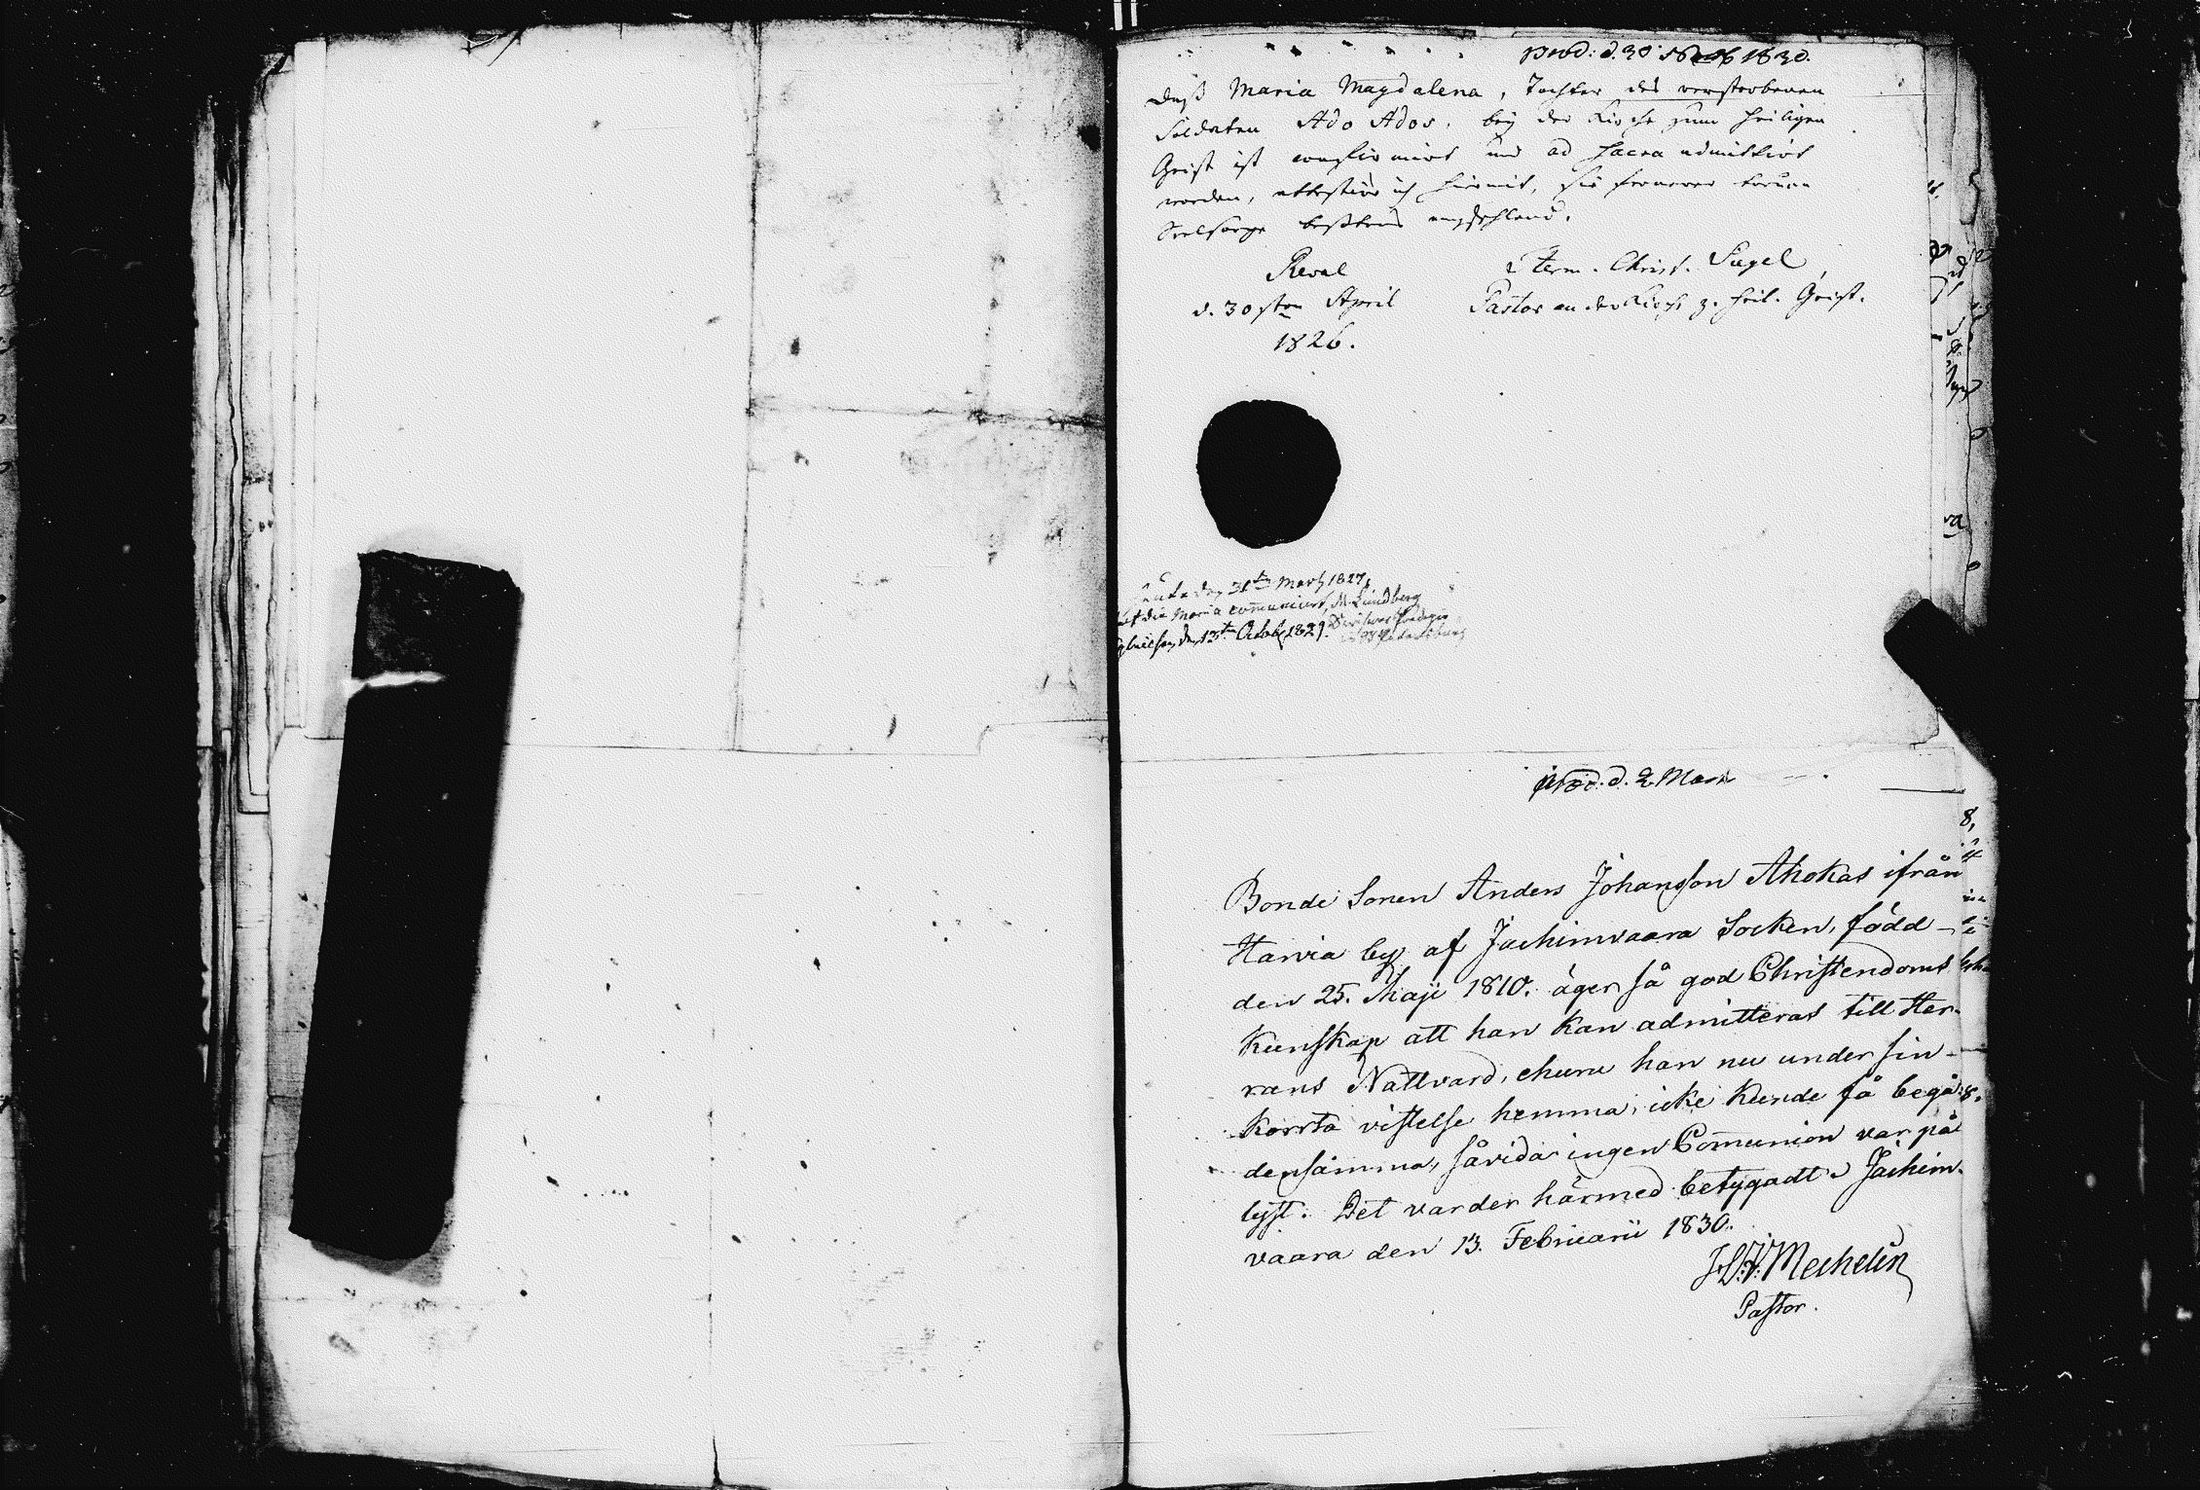 prod: d. 30 1830.
Daß Maria Magdalena, Tochter des verstorbenen
Soldaten Ado Ados, bey der Kirche zum heiligen
Geist ist confirmirt und ad sacra admittirt
worden, attestire ich hiermit, sie fernerer treuen
Seelsorge bestens empfehlend.
Reval
d. 30sten April
1826.
Herm. Christ.
Pastor an der Kirche z. heil. Geist.
den 31ten Martz 1827,
hat die Maria com̄unicirt,
den 13ten Octob. 1829.
Prod. d. 2 Mars
Bonde Sonen Anders Johansson Ahokas ifrån
Harvia by af Jachimvaara Socken, född
den 25. Maji 1810. äger så god Christendoms
kunskap att han kan admitteras till Her-
rans Nattvard, ehuru han nu under sin
korrta vistelse hemma, icke kunde få begå
densamma, såvida ingen Com̄union var på
lyst. Det varder härmed betygadt. Jachim-
vaara den 13. Februarii 1830.
Mechelin
Pastor.